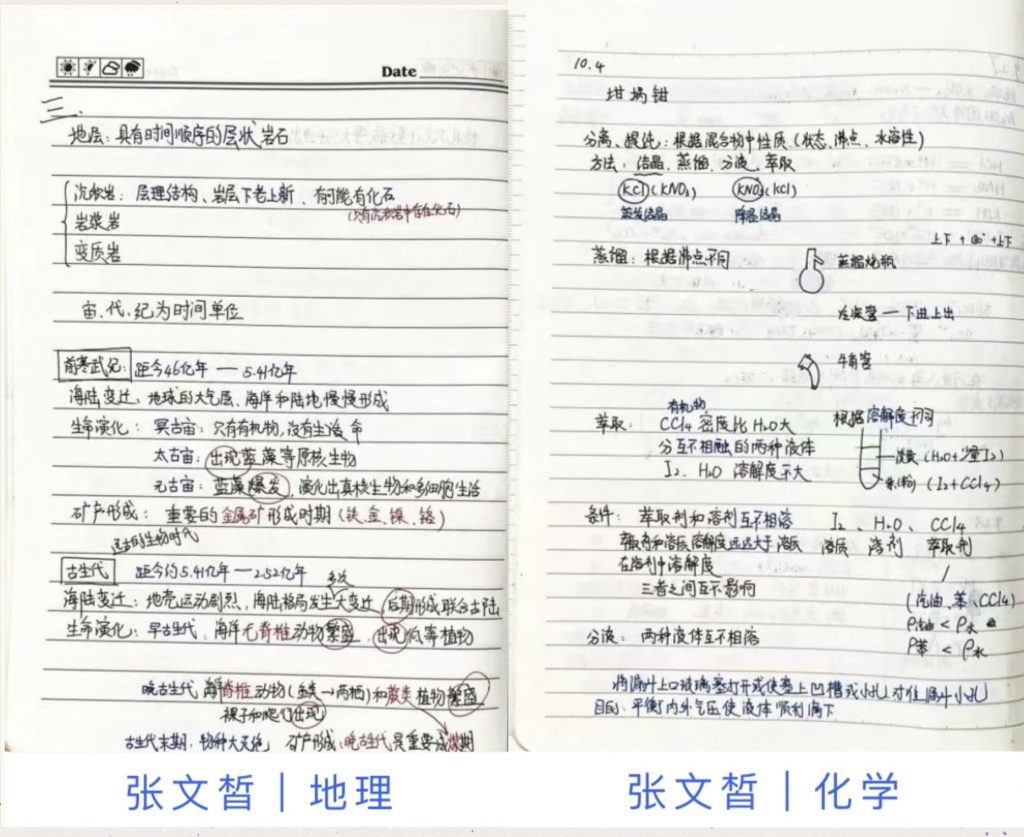 Date
三、
地层：具有时间顺序的层状岩石
沉积岩：层理结构、岩层下老上新、有可能有化石
(只有沉积岩中存在化石)
岩浆岩
变质岩
宙、代、纪为时间单位
前寒武纪：距今46亿年 — 5.41亿年
海陆变迁：地球的大气层、海洋和陆地慢慢形成
生命演化：冥古宙：只有有机物，没有生活命
太古宙：出现蓝藻等原核生物
元古宙：蓝藻爆发，演化出真核生物和多细胞生活
矿产形成：重要的金属矿形成时期（铁、金、镍、铬）
远古的生物时代
古生代 距今约5.41亿年 — 2.52亿年
多次
海陆变迁：地壳运动剧烈，海陆格局发生大变迁，后期形成联合古陆
生命演化：早古生代，海洋无脊椎动物繁盛，出现低等植物
晚古生代 海洋脊椎动物（鱼类→两栖）和蕨类植物繁盛
裸子和爬行出现
古生代末期，物种大灭绝 矿产形成：晚古生代是重要成煤期
张文皙｜地理
10.4
坩埚钳
分离、提纯：根据混合物中性质（状态、沸点、水溶性）
方法：结晶、蒸馏、分液、萃取
KCl(KNO₃) KNO₃(KCl)
蒸发结晶 降温结晶
蒸馏：根据沸点不同 蒸馏烧瓶
冷凝管 — 下进上出
牛角管
有机物
萃取：CCl4 密度比H₂O大 根据溶解度不同
分互不相融的两种液体
I₂、H₂O 溶解度不大
(H₂O+少量I₂)
(I₂+CCl4)
条件：萃取剂和溶剂互不相溶 I₂ H₂O、CCl4
萃取剂和溶质溶解度远远大于溶质 溶质 溶剂 萃取剂
在溶剂中溶解度
三者之间互不影响
(汽油、苯、CCl4)
分液：两种液体互不相溶
ρ油 < ρ水
ρ苯 < ρ水
将漏斗上口玻璃塞打开或使塞上凹槽或小孔对准漏斗小孔
目的：平衡内外气压使液体顺利滴下
张文皙｜化学